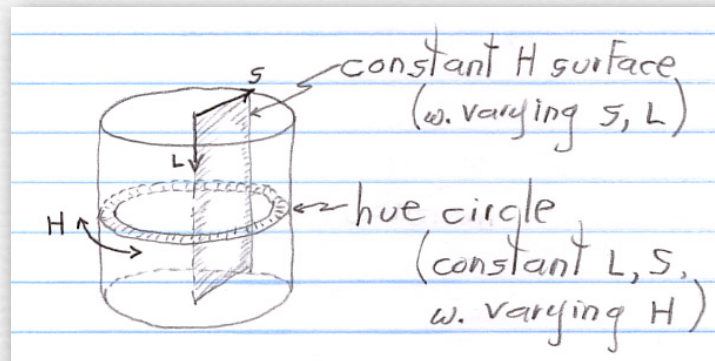 S
constant H surface
(w. varying S, L)
L
H
hue circle
(constant L, S,
w. varying H)